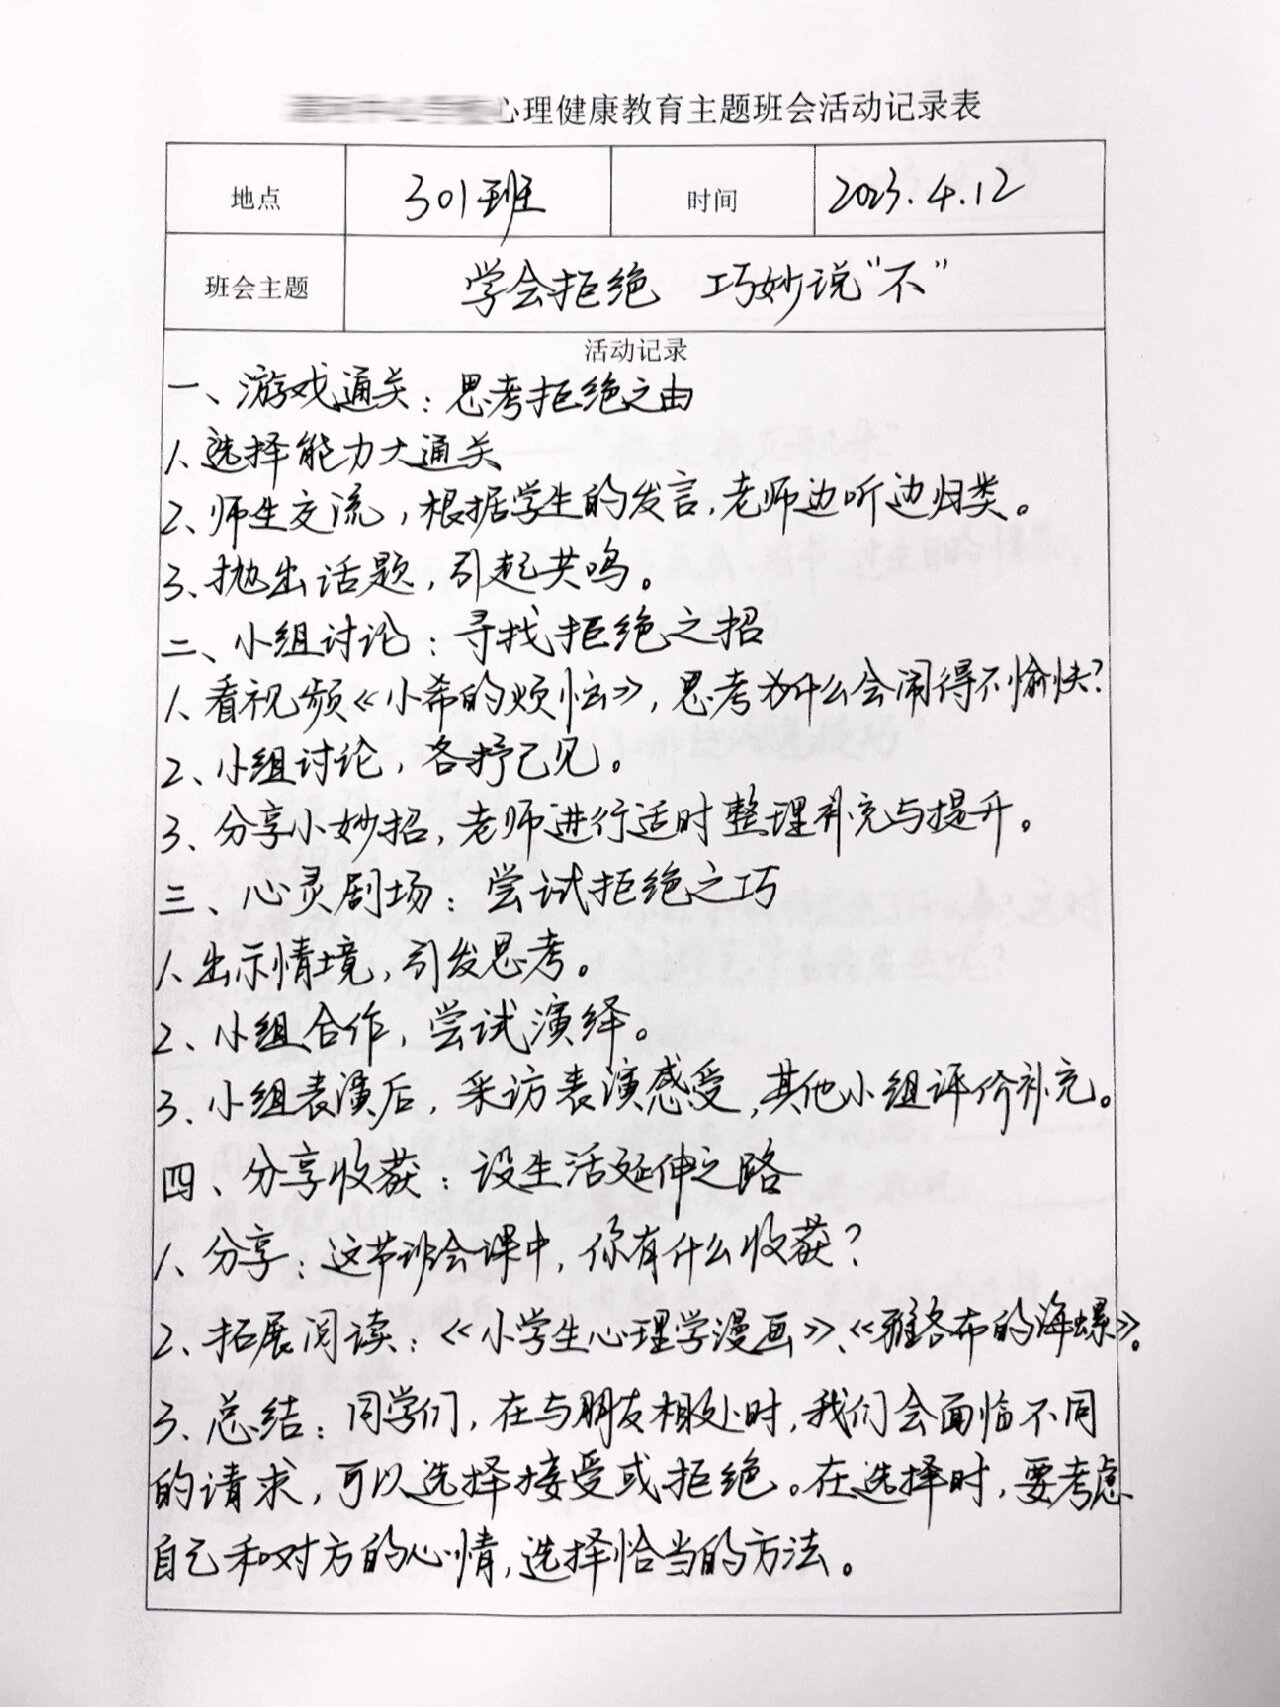 心理健康教育主题班会活动记录表
地点 301班 时间 2023.4.12
班会主题 学会拒绝 巧妙说“不”
活动记录
一、游戏通关：思考拒绝之由
1、选择能力大通关
2、师生交流，根据学生的发言，老师边听边归类。
3、抛出话题，引起共鸣。
二、小组讨论：寻找拒绝之招
1、看视频《小希的烦恼》，思考为什么会闹得不愉快？
2、小组讨论，各抒己见。
3、分享小妙招，老师进行适时整理补充与提升。
三、心灵剧场：尝试拒绝之巧
1、出示情境，引发思考。
2、小组合作，尝试演绎。
3、小组表演后，采访表演感受，其他小组评价补充。
四、分享收获：设生活延伸之路
1、分享：这节班会课中，你有什么收获？
2、拓展阅读：《小学生心理学漫画》、《雅各布的海螺》。
3、总结：同学们，在与朋友相处时，我们会面临不同
的请求，可以选择接受或拒绝。在选择时，要考虑
自己和对方的心情，选择恰当的方法。